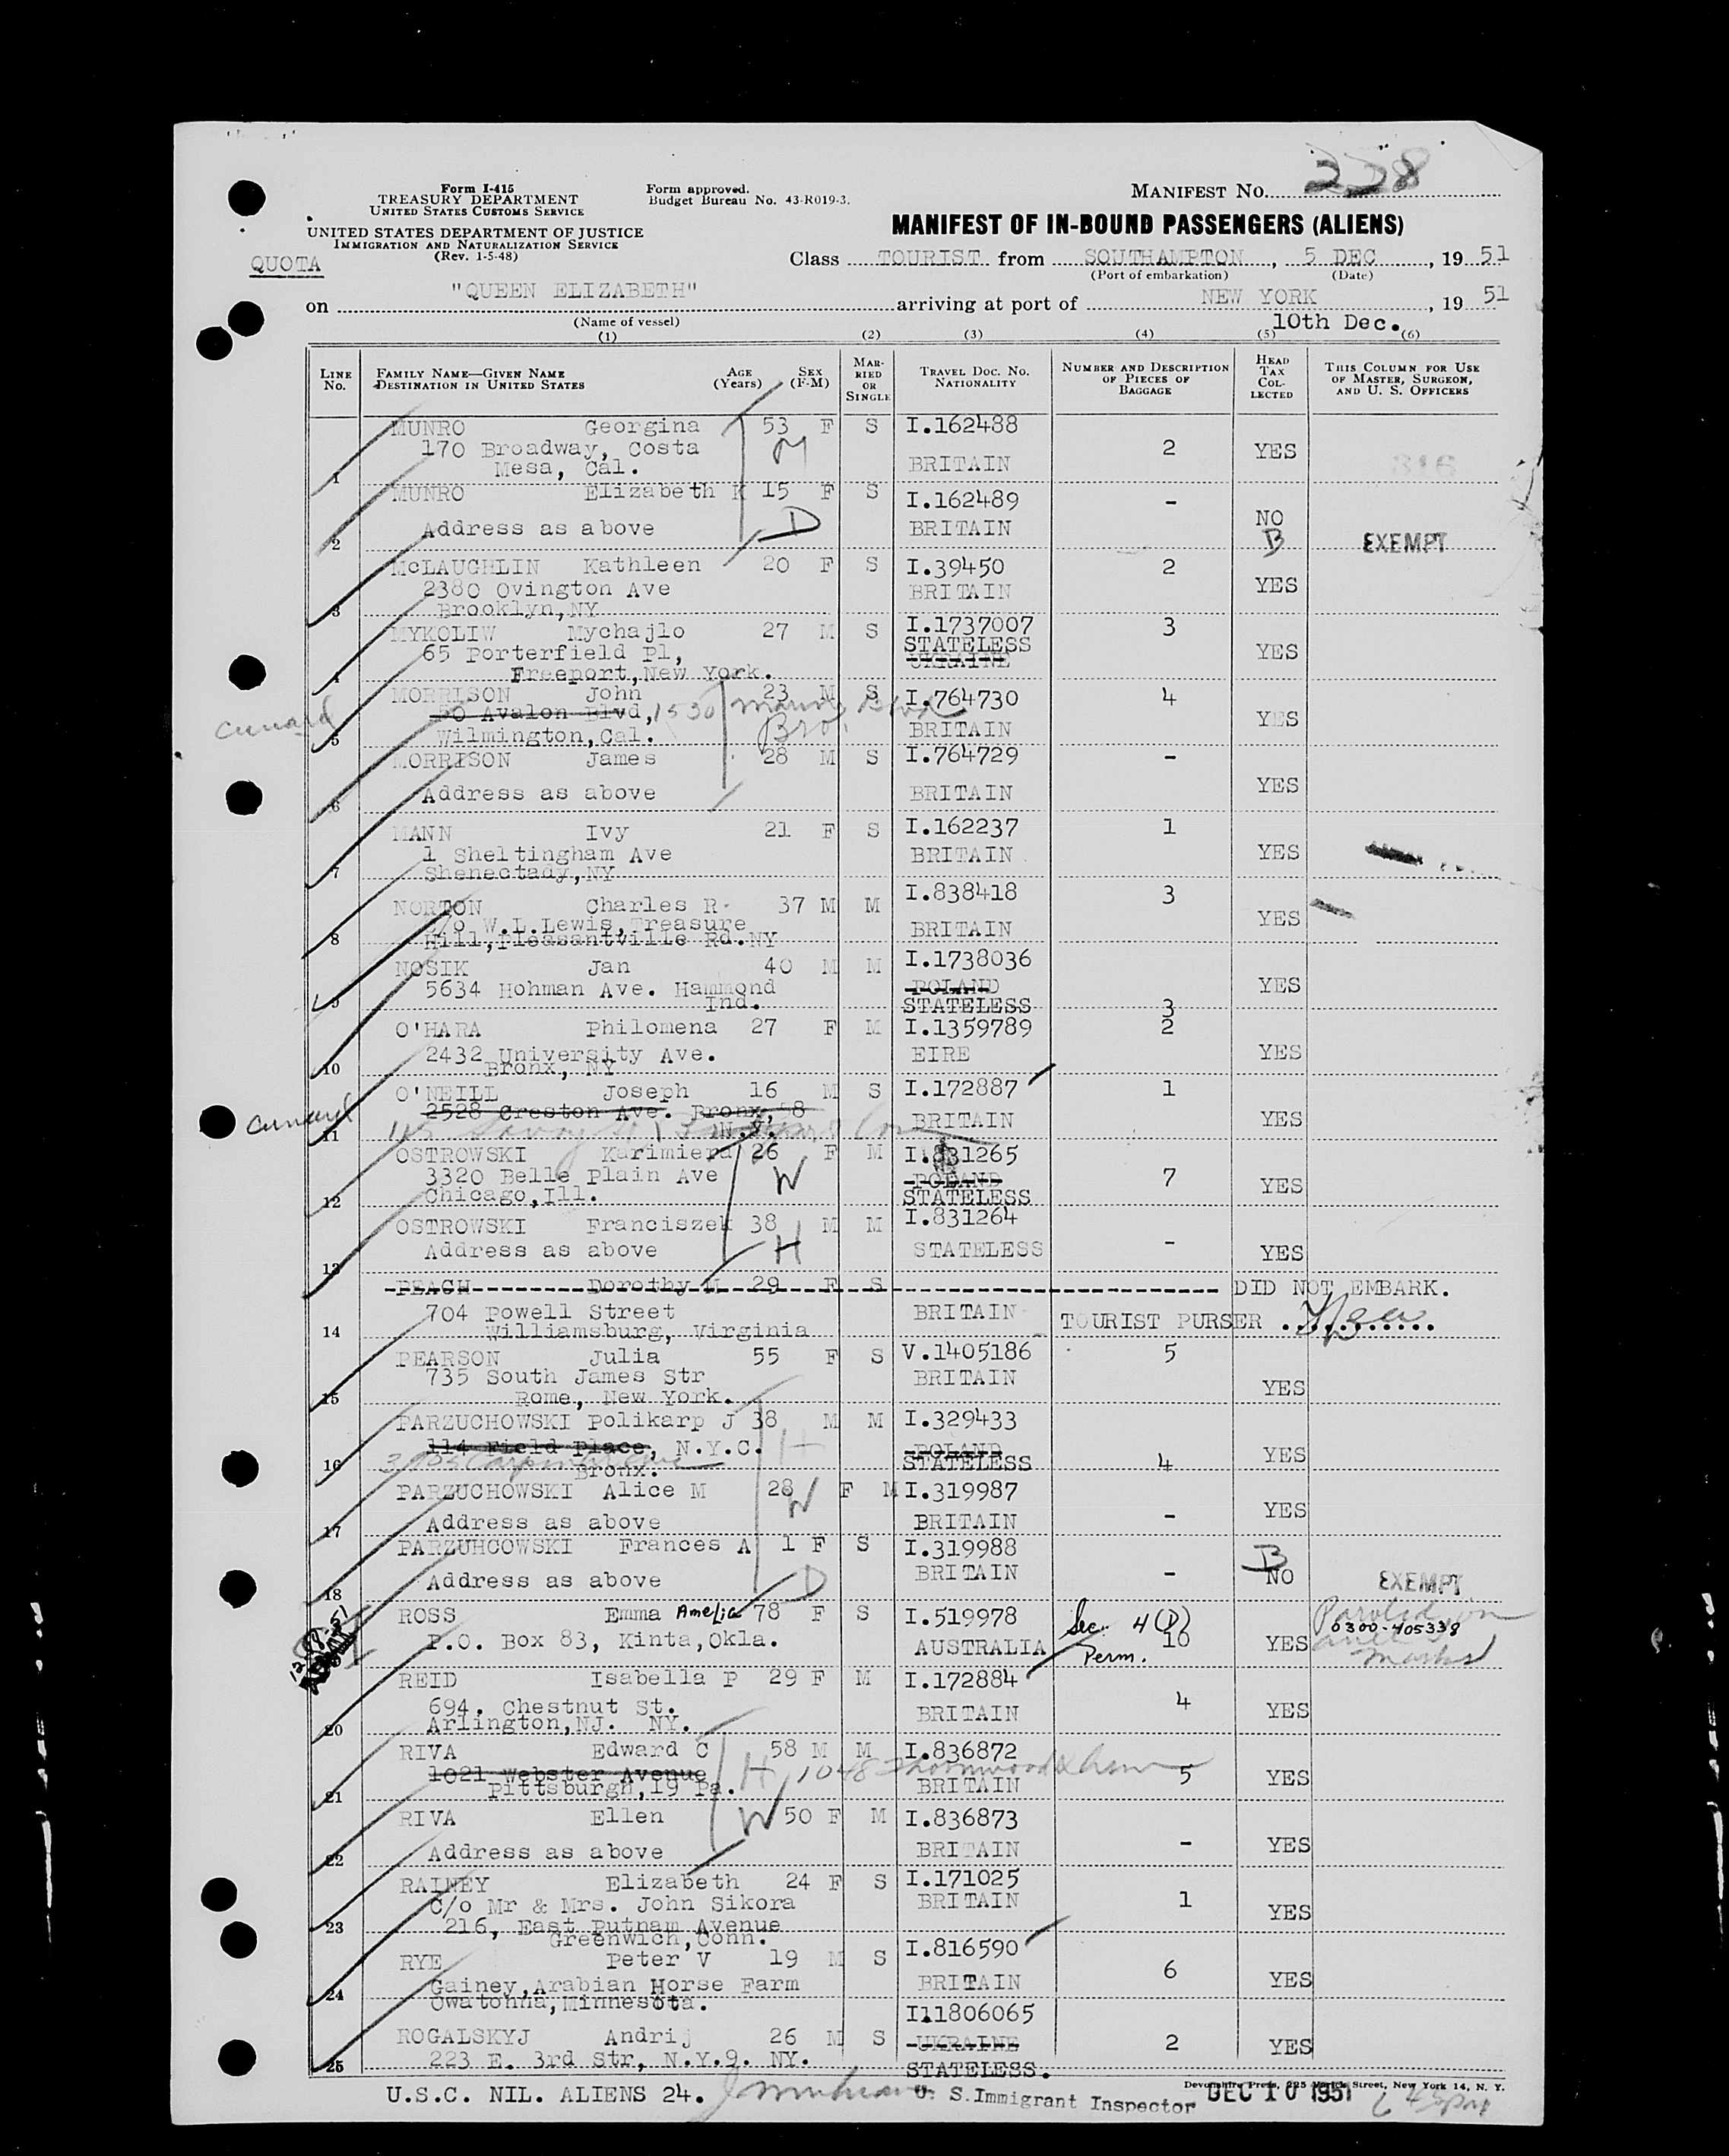 Form I-415
TREASURY DEPARTMENT
UNITED STATES CUSTOMS SERVICE
UNITED STATES DEPARTMENT OF JUSTICE
IMMIGRATION AND NATURALIZATION SERVICE
(Rev. 1-5-48)
QUOTA
Form approved.
Budget Bureau No. 43-R019-3.
MANIFEST No. 228
MANIFEST OF IN-BOUND PASSENGERS (ALIENS)
Class TOURIST from SOUTHAMPTON, 5 DEC, 1951
(Port of embarkation) (Date)
on "QUEEN ELIZABETH" arriving at port of NEW YORK, 1951
(Name of vessel) 10th Dec.
(1) (2) (3) (4) (5) (6)
LINE No. FAMILY NAME—GIVEN NAME DESTINATION IN UNITED STATES AGE (Years) SEX (F-M) MARRIED OR SINGLE TRAVEL DOC. NO. NATIONALITY NUMBER AND DESCRIPTION OF PIECES OF BAGGAGE HEAD TAX COLLECTED THIS COLUMN FOR USE OF MASTER, SURGEON, AND U. S. OFFICERS
MUNRO Georgina 53 F S I.162488
170 Broadway, Costa M 2 YES
1 Mesa, Cal. BRITAIN 816
MUNRO Elizabeth K 15 F S I.162489 -
2 Address as above D BRITAIN NO B EXEMPT
McLAUGHLIN Kathleen 20 F S I.39450 2
2380 Ovington Ave BRITAIN YES
3 Brooklyn,NY
MYKOLIW Mychajlo 27 M S I.1737007 3
65 Porterfield Pl, STATELESS YES
4 Freeport,New York. UKRAINE
MORRISON John 23 M S I.764730 4
cunard 50 Avalon Blvd, 1530 YES
5 Wilmington,Cal. Bro. BRITAIN
MORRISON James 28 M S I.764729 -
6 Address as above BRITAIN YES
MANN Ivy 21 F S I.162237 1
1 Sheltingham Ave BRITAIN YES
7 Shenectady,NY
NORTON Charles R 37 M M I.838418 3
c/o W.L.Lewis,Treasure BRITAIN YES
8 Hill,Pleasantville Rd.NY
NOSIK Jan 40 M M I.1738036
5634 Hohman Ave. Hammond POLAND YES
9 Ind. STATELESS 3
O'HARA Philomena 27 F M I.1359789 2
2432 University Ave. EIRE YES
10 Bronx, NY
O'NEILL Joseph 16 M S I.172887 1
cunard 2528 Creston Ave. Bronx, 58 BRITAIN YES
11 N.Y.
OSTROWSKI Karimiera 26 F M I.831265
3320 Belle Plain Ave W POLAND 7 YES
12 Chicago,Ill. STATELESS
OSTROWSKI Franciszek 38 M M I.831264
13 Address as above H STATELESS - YES
PEACH Dorothy M 29 F S DID NOT EMBARK.
704 Powell Street BRITAIN TOURIST PURSER
14 Williamsburg, Virginia
PEARSON Julia 55 F S V.1405186 5
735 South James Str BRITAIN YES
15 Rome, New York.
PARZUCHOWSKI Polikarp J 38 M M I.329433
114 Field Place, N.Y.C. H POLAND YES
16 Bronx. STATELESS 4
PARZUCHOWSKI Alice M 28 W F M I.319987 YES
17 Address as above BRITAIN -
PARZUHCOWSKI Frances A 1 F S I.319988 B
18 Address as above D BRITAIN - NO EXEMPT
ROSS Emma Amelia 78 F S I.519978 Sec. 4 (D) Paroled
P.O. Box 83, Kinta,Okla. AUSTRALIA 10 YES 0300-405338
19 Perm.
REID Isabella P 29 F M I.172884
694. Chestnut St. BRITAIN 4 YES
20 Arlington,NJ. NY.
RIVA Edward C 58 M M I.836872
1021 Webster Avenue H 1048 5 YES
21 Pittsburgh,19 Pa. BRITAIN
RIVA Ellen W 50 F M I.836873
22 Address as above BRITAIN - YES
RAINEY Elizabeth 24 F S I.171025
C/o Mr & Mrs. John Sikora BRITAIN 1 YES
23 216, East Putnam Avenue
Greenwich,Conn.
RYE Peter V 19 M S I.816590
Gainey,Arabian Horse Farm BRITAIN 6 YES
24 Owatonna,Minnesota.
I11806065
ROGALSKYJ Andrij 26 M S UKRAINE 2 YES
25 223 E. 3rd Str, N.Y.9. NY. STATELESS.
U.S.C. NIL. ALIENS 24. U. S. Immigrant Inspector DEC 10 1951
Devonshire Press, 225 Street, New York 14, N. Y.